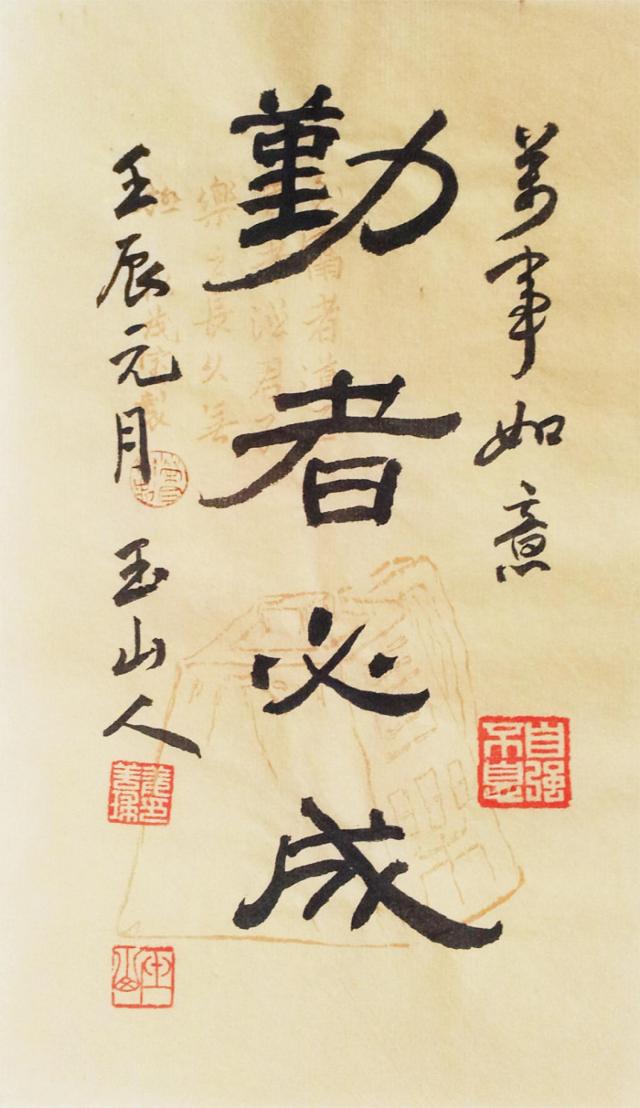 萬事如意
勤者必成
壬辰元月 玉山人
自强不息